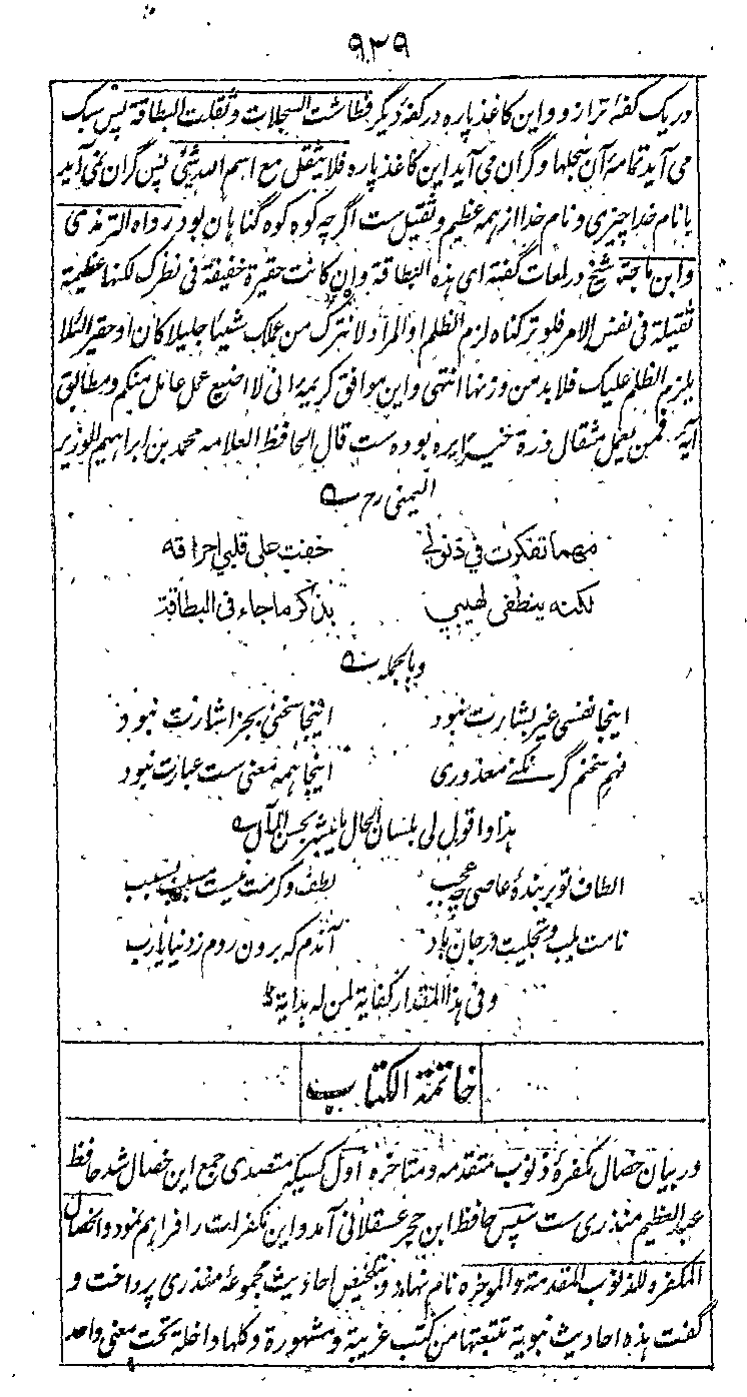 ۹۳۹
در یک کفهٔ ترازو و این کاغذ پاره در کفهٔ دیگر فطاشت السجلات و ثقلت البطاقة پس سبک
می آید تمامهٔ آن سجلها و گران می آید این کاغذ پاره فلا یثقل مع اسم الله شیٔ پس گران نمی آید
با نام خدا چیزی و نام خدا از همه عظیم و ثقیل ست اگرچه کوه کوه گناهان بود رواه الترمذی
وابن ماجة شیخ در لمعات گفته ای هذه البطاقة وان کانت حقیرة خفیفة فی نظرک لکنها عظیمة
ثقیلة فی نفس الامر فلو ترکناه لزم الظلم او المراد لا نترک من عملک شیئا جلیلا کان او حقیرا لئلا
یلزم الظلم علیک فلا بد من وزنها انتهی و این موافق کریمهٔ انی لا اضیع عمل عامل منکم و مطابق
آیه فمن یعمل مثقال ذرة خیرا یره بوده ست قال الحافظ العلامه محمد بن ابراهیم الوزیر
الیمنی رح
مهما تفکرت فی ذنوبی خفت علی قلبی احراقه
لکنه ینطفی لهیبی بذکر ما جاء فی البطاقة
و بالجمله
اینجا نفسی غیر بشارت نبود اینجا سخنی بجز اشارت نبود
فهم سخنم گر نکنے معذوری اینجا همه معنی ست عبارت نبود
هذا و اقول لی بلسان الحال بحسن المآل
الطاف تو بر بندهٔ عاصی چه عجب لطف و کرمت نیست سبب
نامت بلب و تجلیت در جان باد آندم که برون روم ز دنیا یا رب
وفی هذا المقدار کفایة لمن له هدایة
خاتمة الکتاب
در بیان خصال مکفرهٔ ذنوب متقدمه و متاخره اول کسیکه متصدی جمع این خصال شد حافظ
عبد العظیم منذری ست سپس حافظ ابن حجر عسقلانی آمد و این مکفرات را فراهم نمود و الخصال
المکفرة للذنوب المقدمة والموخرة نام نهاد و بتلخیص احادیث مجموعهٔ منذری پرداخت و
گفت هذه احادیث نبویة تتبعتها من کتب غریبة و مشهورة و کلها داخلة تحت معنی واحد